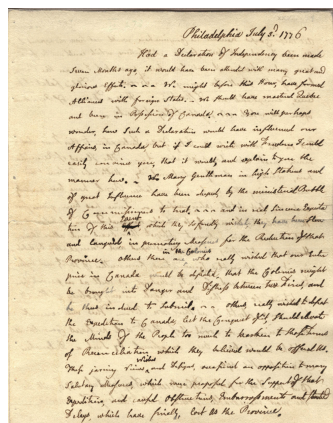 Philadelphia July 3d. 1776
Had a Declaration of Independency been made
seven Months ago, it would have been attended with many great and
glorious Effects. We might before this Hour, have formed
Alliances with foreign States. We should have mastered Quebec
and been in Possession of Canada. You will perhaps
wonder, how such a Declaration would have influenced our
Affairs, in Canada, but if I could write with Freedom I could
easily convince you, that it would, and explain to you the
manner how. Many Gentlemen in high Stations and
of great Influence have been duped, by the ministerial Bubble
of Commissioners to treat, and in real, sincere Expecta
tion of this Event, which they so fondly wished, they have been slow
and languid, in promoting Measures for the Reduction of that
Province. Others there are in the Colonies who really wished that our Enter
prise in Canada would be defeated, that the Colonies might
be brought into Danger and Distress between two Fires, and
be thus induced to submit. others really wished to defeat
the Expedition to Canada, lest the Conquest of it, should elevate
the Minds of the People too much to hearken to those Terms
of Reconciliation which they believed would be offered Us.
These jarring Views, Wishes and Designs, occasioned an opposition to many
salutary Measures, which were proposed for the Support of that
Expedition, and caused Obstructions, Embarrassments and studied
Delays, which have finally, lost Us the Province.